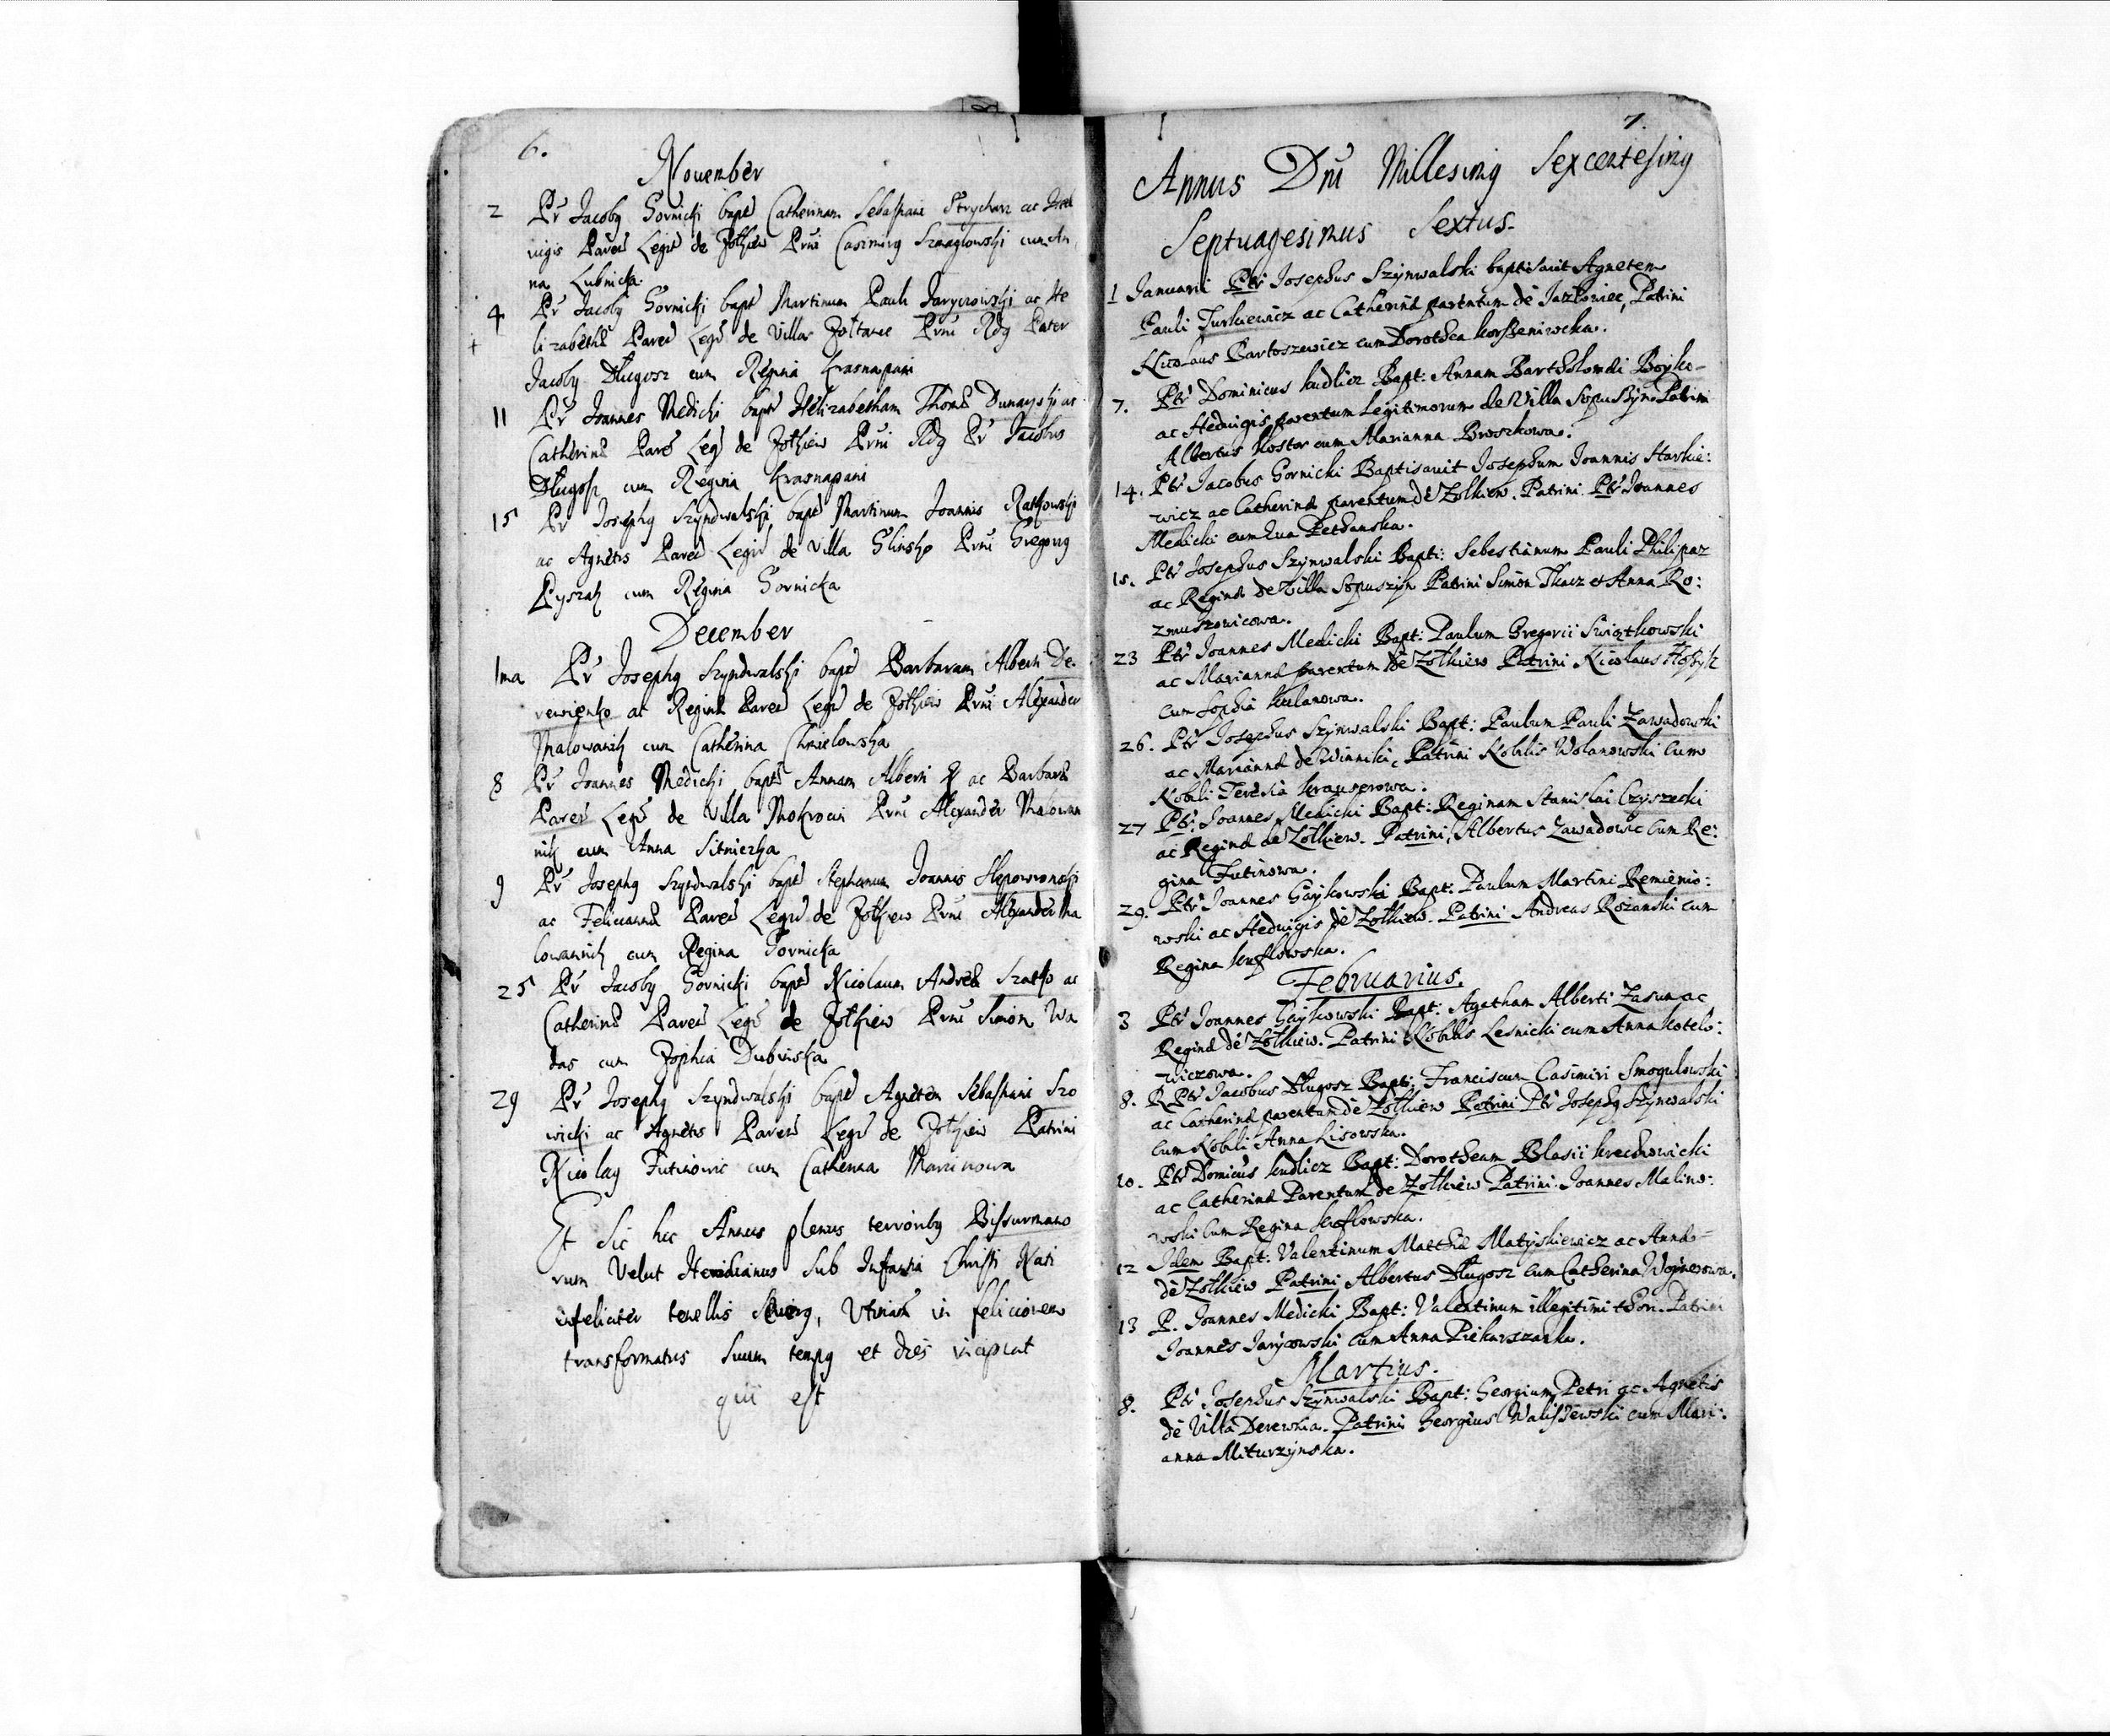 6.
November
2 Pr Jacobus Gornicki bapt Catherinam Sebastiani Strycharz ac Hed
uigis Paren Legit de Zolkiew Prni Casimirus Szmaglowski cum An
na Lubnicka
4 Pr Jacobus Gornicki bapt Martinum Pauli Jarycrowski ac He
lizabethæ Paren Legit de Villa Zoltance Prni Rdus Pater
Jacobus Dlugosz cum Regina Krasnapani
11 Pr Joannes Medicki bapt Helizabetham Thomæ Dunayski ac
Catherinæ Paren Leg de Zolkiew Prni Rdus Pr Jacobus
Dlugosz cum Regina Krasnapani
15 Pr Josephus Szyndwalski bapt Martinum Joannis Ratkowski
ac Agnetis Paren Legit de Villa Glinsko Prni Gregorius
Pyszak cum Regina Gornicka
December
1ma Pr Josephus Szyndwalski bapt Barbaram Alberti De
rewienko ac Reginæ Paren Legit de Zolkiew Prni Alexander
Malowanik cum Catherina Chmielowska
8 Pr Joannes Medicki bapt Annam Alberti ac Barbaræ
Paren Legit de Villa Mokrotin Prni Alexander Malowa
nik cum Anna Sitnierka
9 Pr Josephus Szyndwalski bapt Stephanum Joannis Slepowronski
ac Feliciannæ Paren Legit de Zolkiew Prni Alexander Ma
lowannik cum Regina Gornicka
25 Pr Jacobus Gornicki bapt Nicolaum Andreæ Szatko ac
Catherinæ Paren Legit de Zolkiew Prni Simon Wa
das cum Zophia Dubinska
29 Pr Josephus Szyndwalski bapt Agnetem Sebastiani Szo
wicki ac Agnetis Paren Legit de Zolkiew Patrini
Nicolaus Futinowic cum Catherina Marcinowa
Et Sic hic Annus plenus terroribus Bissurmano
rum Velut Herodianus Sub Infantia Christi Nati
infeliciter tenellis, Utinam in feliciorem
transformatus Suum tempus et dies incipiat
qui est
7.
Annus Dni Millesimus Sexcentesimus
Septuagesimus Sextus.
1 Januarii Ptr Josephus Szynwalski baptisauit Agnetem
Pauli Turkiewicz ac Catherinæ parentum de Jazlowiec, Patrini
Nicolaus Bartoszewicz cum Dorothea korsseniwcka.
7. Ptr Dominicus kudlicz Bapt: Annam Bartholomæi Boyko-
ac Heduigis parentum Legitimorum de Villa Sopuszyn Patrini
Albertus Kostor cum Marianna Broszkowa.
14. Ptr Jacobus Gornicki Baptisauit Josephum Joannis Harkie:
wicz ac Catherinæ parentum de Zolkiew. Patrini Ptr Joannes
Medicki cum Eua Bethanska.
15. Ptr Josephus Szynwalski Bapt: Sebestianum Pauli Philipaz
ac Reginæ de Villa Sopuszyn Patrini Simon Tkacz et Anna Ro:
zmuszowicowa.
23 Ptr Joannes Medicki Bapt: Paulum Gregorii Swiątkowski
ac Mariannæ parentum de Zolkiew Patrini Nicolaus
cum Sophia kulanowa.
26. Ptr Josephus Szynwalski Bapt: Paulum Pauli Zawadowski
ac Mariannæ de Winniki, Patrini Nobilis Wolanowski Cum
Nobili Teresia krauserowa.
27 Ptr: Joannes Medicki Bapt: Reginam Stanislai Czyszecki
ac Reginæ de Zolkiew. Patrini, Albertus Zawadowic Cum Re:
gina Futinowa.
29. Ptr Joannes Gaykowski Bapt: Paulum Martini Remienio:
wski ac Heduigis de Zolkiew. Patrini Andreas Rozanski cum
Regina kuflowska.
Februarius.
3 Ptr Joannes Gaykowski Bapt: Agatham Alberti Zasun ac
Reginæ de Zolkiew. Patrini Nobilis Lesnicki cum Anna kotelo:
wiczowa.
8. R Ptr Jacobus Dlugosz Bapt: Franciscum Casimiri Smogulowski
ac Catherinæ parentum de Zolkiew Patrini Ptr Josephus Szynwalski
Cum Nobili Anna Lisowska.
10. Ptr Domicus kudlicz Bapt: Dorotheam Blasii krechowicki
ac Catherinæ Parentum de Zolkiew Patrini. Joannes Malino:
wski Cum Regina kuflowska.
12 Idem Bapt: Valentinum Matthiæ Matyskiewicz ac Annæ-
de Zolkiew Patrini Albertus Dlugosz Cum Catherina Woynerowa.
13 P. Joannes Medicki Bapt: Valentinum illegitimi thori. Patrini
Joannes Jarycowski Cum Anna Piekarszanka.
Martius.
8. Ptr Josephus Szynwalski Bapt: Georgium Petri ac Agnetis
de Villa Derewnia. Patrini Georgius Walissewski cum Mari:
anna Miturzynska.